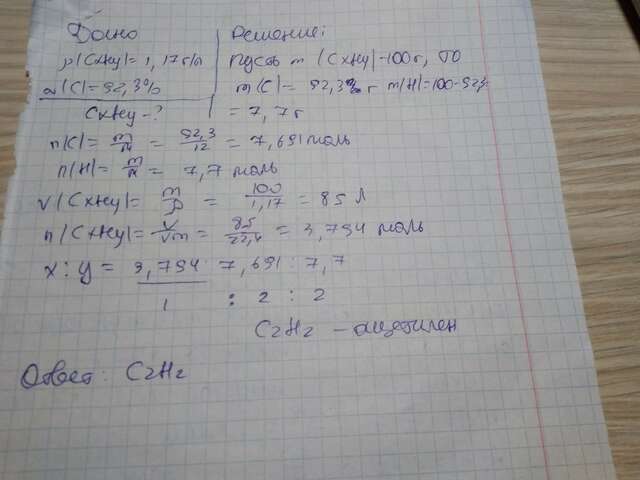 Дано
Решение:
ρ(CxHy)=1,17г/л
Пусть m (CxHy)-100г, то
ω(C)=92,3%
m(C)= 92,3% г m(H)=100-92,3
CxHy-?
= 7,7г
n(C)= m/M = 92,3/12 = 7,691моль
n(H)= m/M = 7,7 моль
V(CxHy)= m/ρ = 100/1,17 = 85 л
n(CxHy)= V/Vm = 85/22,4 = 3,794 моль
x:y = 3,794: 7,691 : 7,7
1 : 2 : 2
C2H2 - ацетилен
Ответ: C2H2